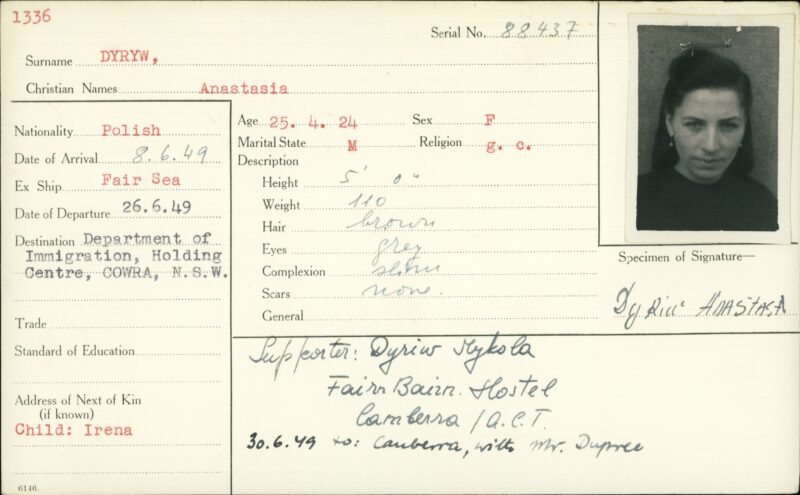 1336
Serial No. 88437
Surname DYRYW,
Christian Names Anastasia
Nationality Polish
Date of Arrival 8.6.49
Ex Ship Fair Sea
Date of Departure 26.6.49
Destination Department of
Immigration, Holding
Centre, COWRA, N.S.W.
Trade
Standard of Education
Address of Next of Kin
(if known)
Child: Irena
6146
Age 25. 4. 24 Sex F
Marital State M Religion g. c.
Description
Height 5' 0"
Weight 110
Hair brown
Eyes grey
Complexion
Scars none.
General
Specimen of Signature—
ANASTASA
Supporter: Dyriw Mykola
Fairn Bairn. Hostel
Canberra / A.C.T.
30.6.49 to: Canberra, with Mr. Dupree